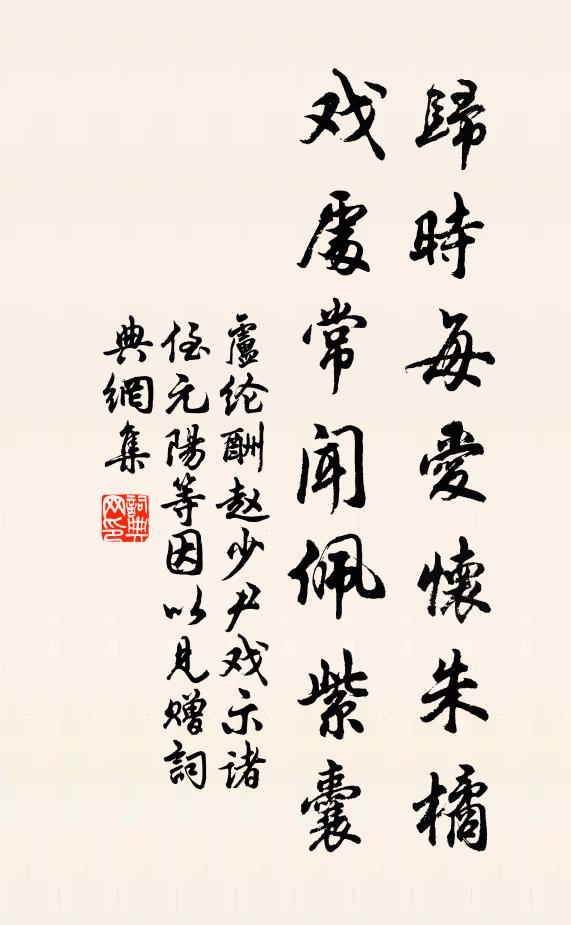 歸時每愛懷朱橘
戏處常闻佩紫囊
盧纶酬赵少尹戏示诸
侄元陽等因以见赠詞
典網集
詞典网印